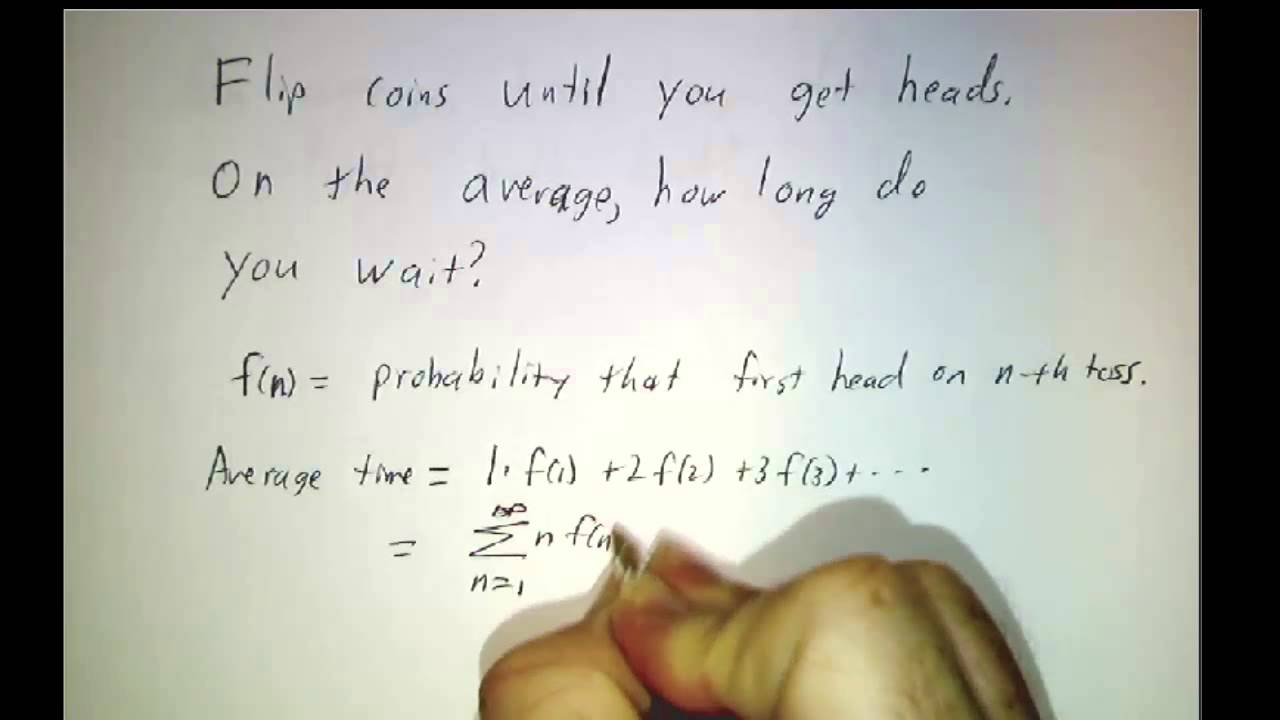 Flip coins until you get heads.
On the average, how long do
you wait?
f(n) = probability that first head on n-th toss.
Average time = 1· f(1) + 2 f(2) + 3 f(3) + · · · ·
= ∑ n=1 ∞ n f(n